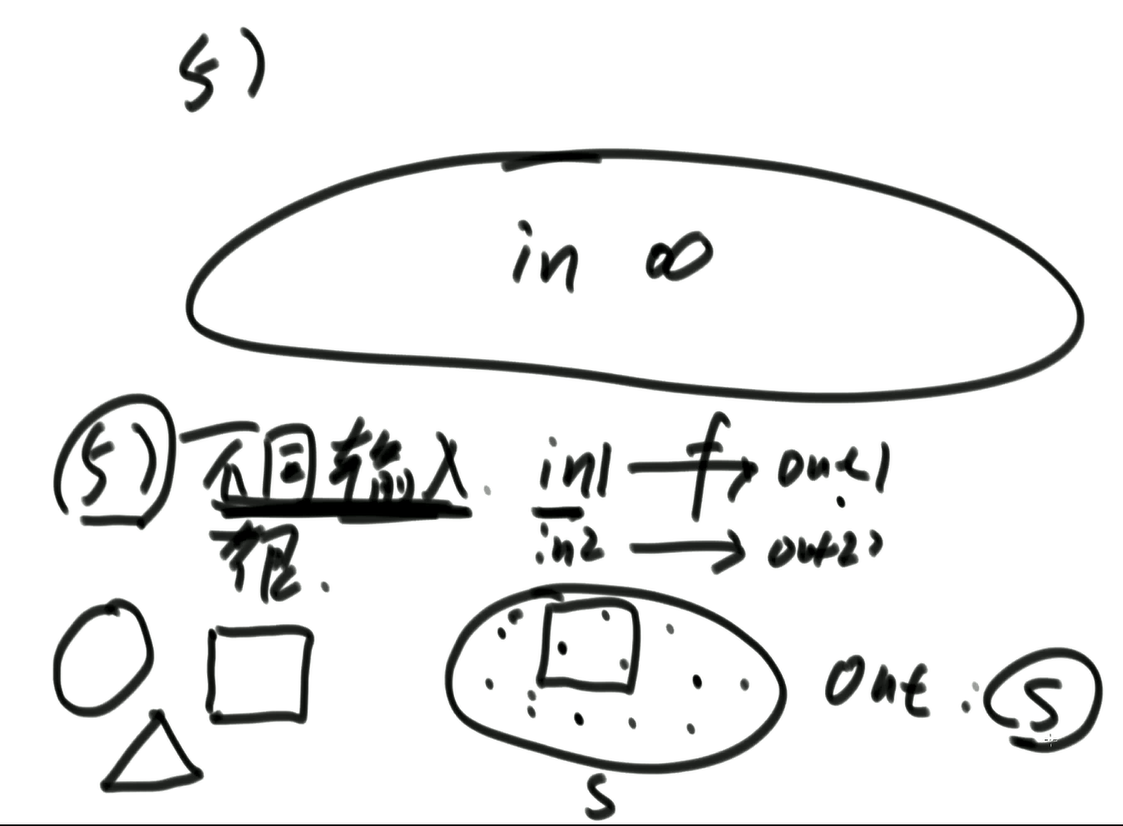 5)
in ∞
5) 不同输入 in1 → out1
f
in2 → out2
程.
out : S
S